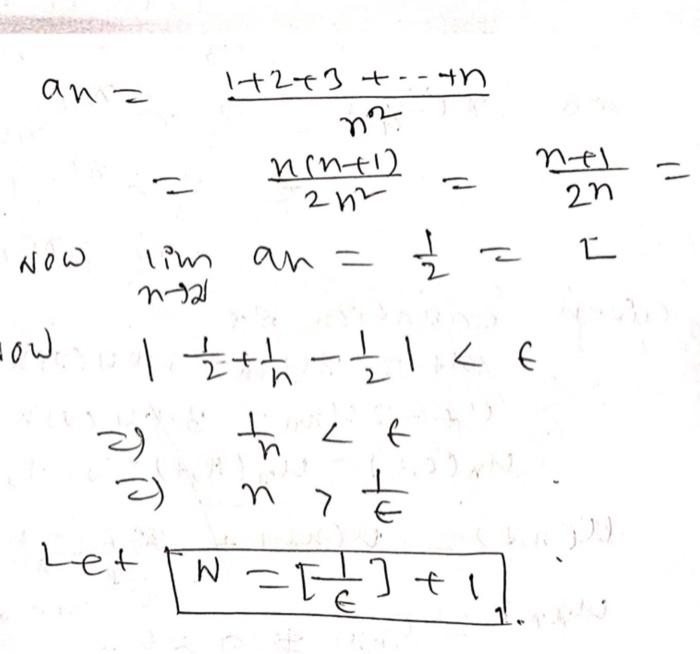 an = 1+2+3+---+n / n²
= n(n+1) / 2n² = n+1 / 2n =
NOW lim n→∞ an = 1/2 =
ow | 1/2 + 1/n - 1/2 | < ε
⇒) 1/n < ε
⇒) n > 1/ε
Let N = [1/ε] + 1